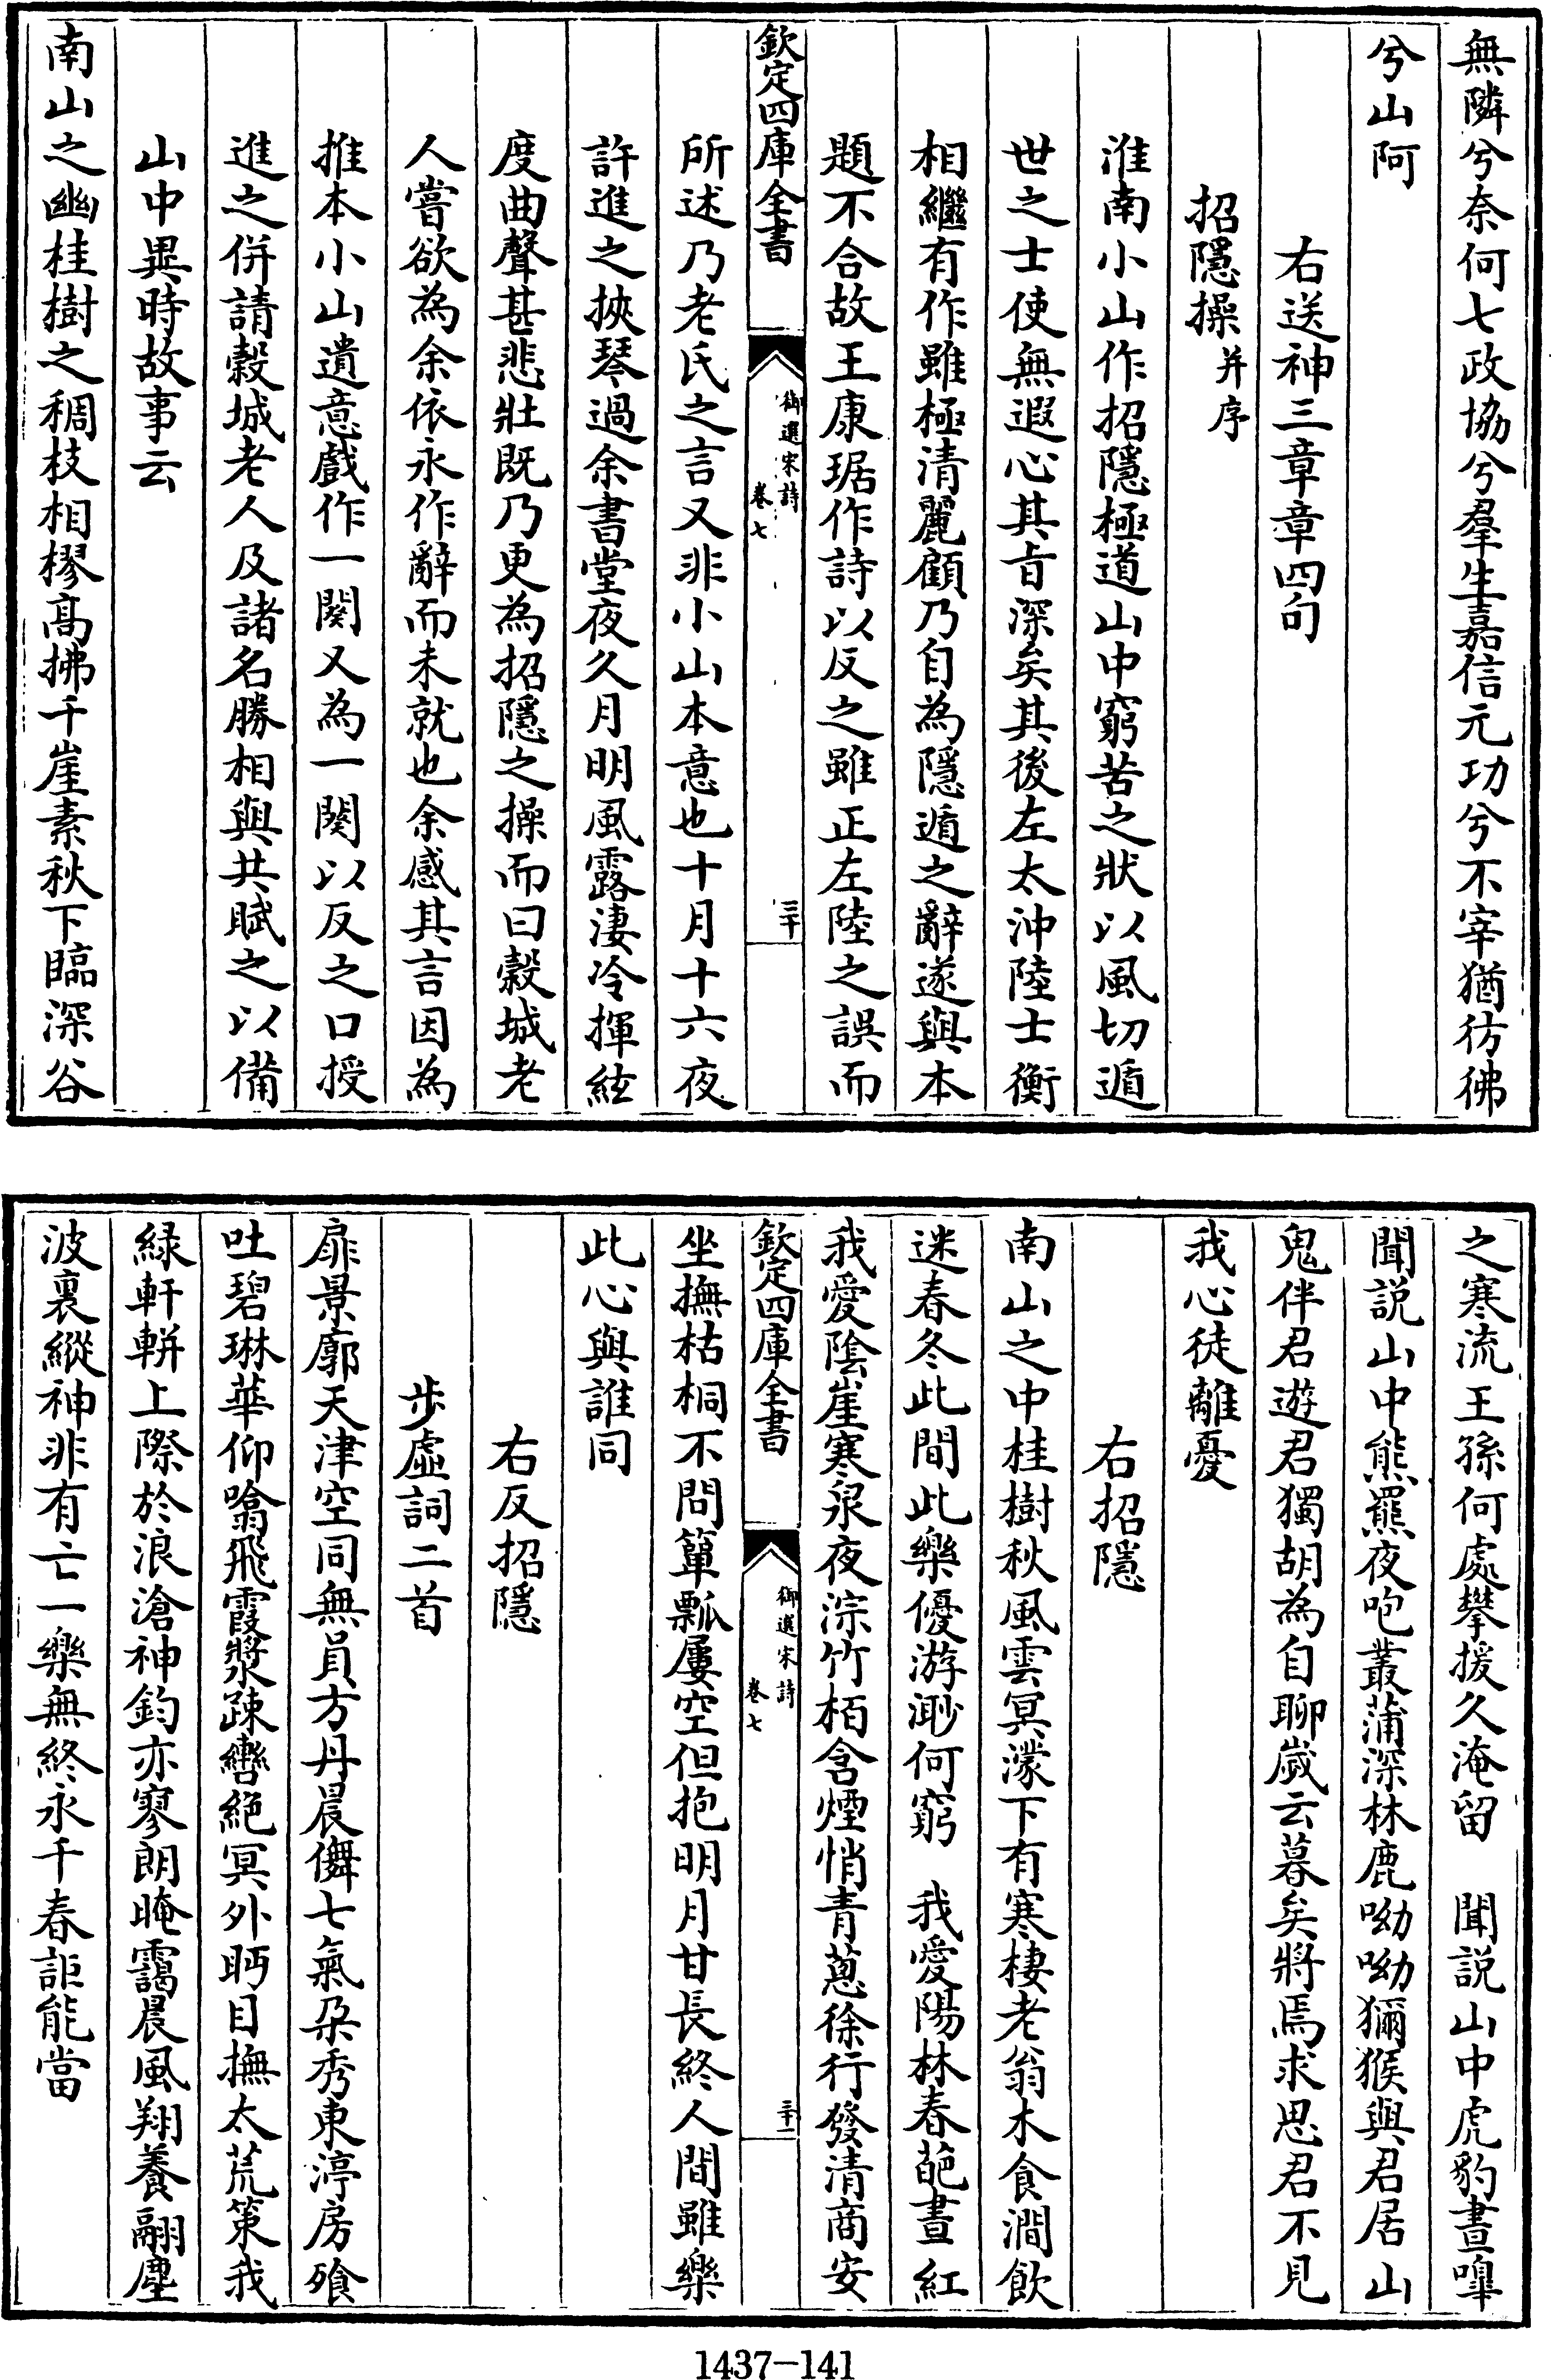 無隣兮奈何七政協兮羣生嘉信元功兮不宰猶彷彿
兮山阿
右送神三章章四句
招隱操并序
淮南小山作招隱極道山中窮苦之狀以風切遁
世之士使無遐心其㫖深矣其後左太沖陸士衡
相繼有作雖極清麗顧乃自為隱遁之辭遂與本
題不合故王康琚作詩以反之雖正左陸之誤而
欽定四庫全書
御選宋詩
卷七
三十
所述乃老氏之言又非小山本意也十月十六夜
許進之挾琴過余書堂夜久月明風露淒冷揮絃
度曲聲甚悲壯既乃更為招隱之操而曰穀城老
人嘗欲為余依永作辭而未就也余感其言因為
推本小山遺意戲作一闋又為一闋以反之口授
進之併請穀城老人及諸名勝相與共賦之以備
山中異時故事云
南山之幽桂樹之稠枝相樛高拂千崖素秋下臨深谷
之寒流王孫何處攀援久淹留　聞説山中虎豹晝嘷
聞説山中熊羆夜咆叢蒲深林鹿呦呦獼猴與君居山
鬼伴君遊君獨胡為自聊歲云暮矣將焉求思君不見
我心徒離憂
右招隱
南山之中桂樹秋風雲冥濛下有寒棲老翁木食澗飲
迷春冬此間此樂優游渺何窮　我愛陽林春葩晝紅
我愛陰崖寒泉夜淙竹栢含煙悄青蔥徐行發清商安
欽定四庫全書
御選宋詩
卷七
三十一
坐撫枯桐不問簞瓢屢空但抱明月甘長終人間雖樂
此心與誰同
右反招隱
步虛詞二首
扉景廓天津空同無員方丹晨儛七氣朶秀東渟房飱
吐碧琳華仰噏飛霞漿疎轡絶冥外眄目撫太荒策我
綠軒軿上際於浪滄神鈞亦寥朗晻靄晨風翔養翮塵
波裏縱神非有亡一樂無終永千春詎能當
1437-141